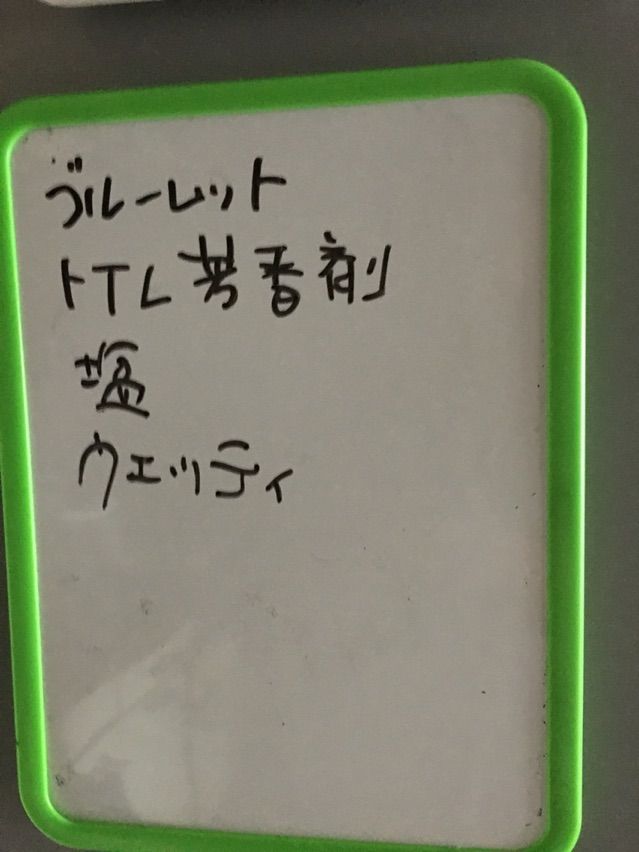 ブルーレット
トイレ芳香剤
塩
ウェッティ